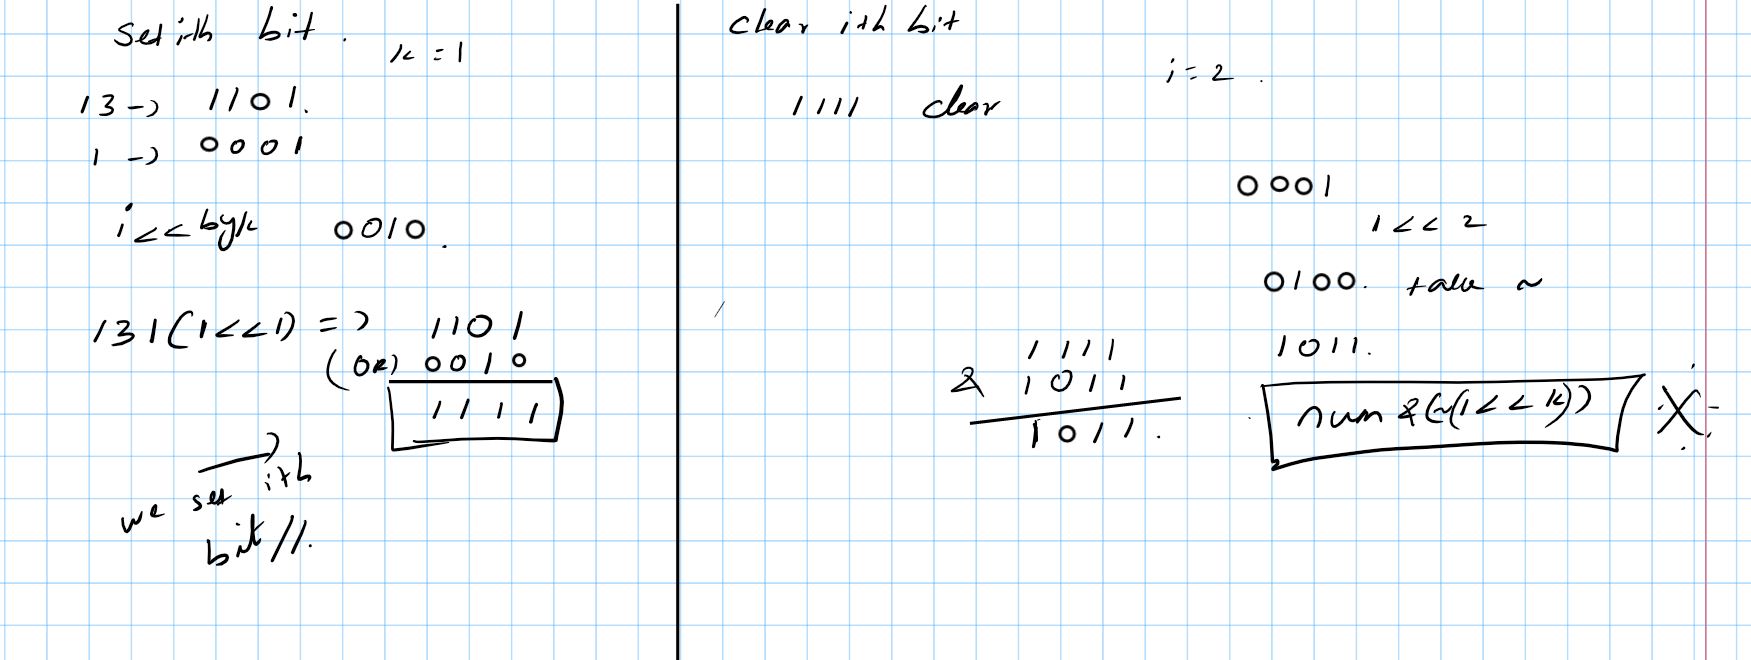 Set ith bit.
k = 1
13 -> 1101.
1 -> 0001
i << by k 0010.
13 | (1<<1) => 1101
(OR) 0010
1111
we set ith
bit //.
clear ith bit
i = 2.
1111 clear
0001
1 << 2
0100. take ~
1011.
1111
& 1011
1011.
num & (~(1 << k))